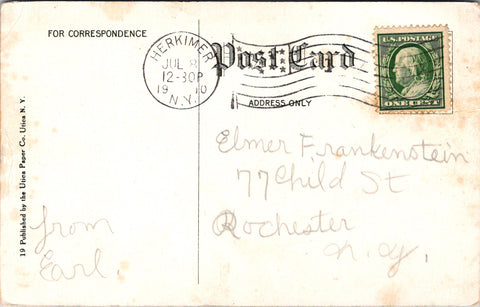 FOR CORRESPONDENCE
Post Card
ADDRESS ONLY
HERKIMER
JUL 8
12-30P
1910
N.Y.
U.S. POSTAGE
ONE CENT
Elmer Frankenstein
77 Child St
Rochester
N.Y.
from
Earl.
19 Published by the Utica Paper Co. Utica N. Y.